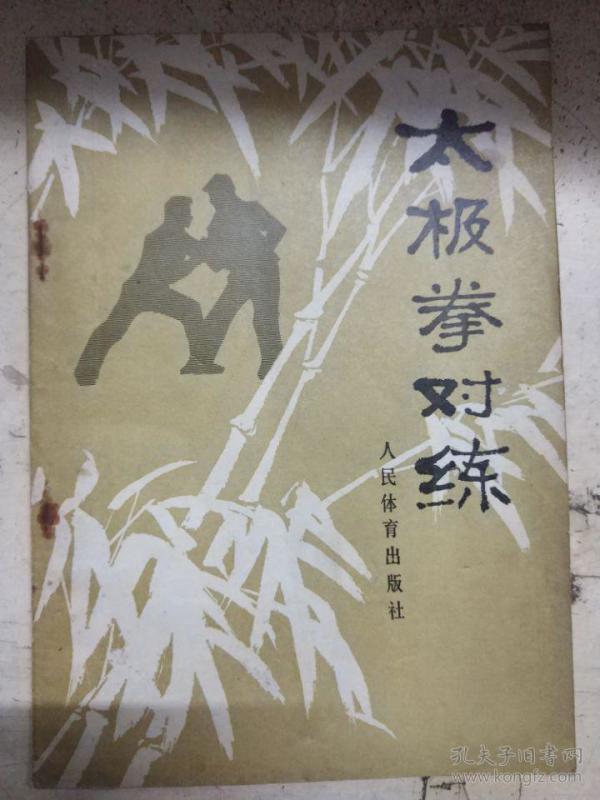 太极拳对练
人民体育出版社
孔夫子旧书网
www.kongfz.com